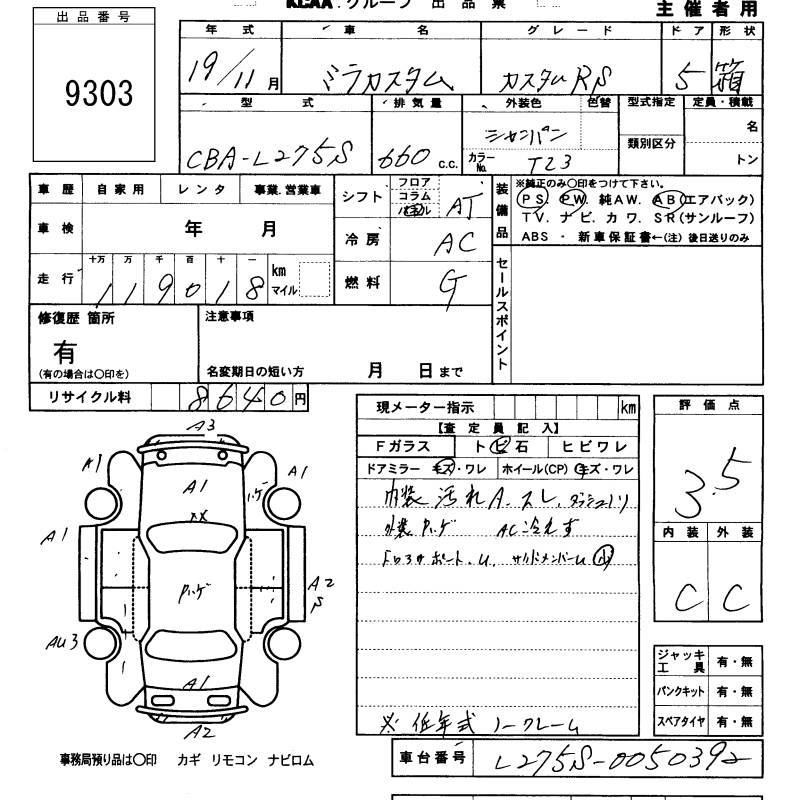 KCAA グループ 出品票
主催者用
出品番号
9303
年式 車名 グレード ドア 形状
19/11月 ミラカスタム カスタムRS 5 箱
型式 排気量 外装色 色替 型式指定 定員・積載
CBA-L275S 660 c.c. シャンパン 類別区分 名
カラーNo. T23 トン
車歴 自家用 レンタ 事業.営業車
車検 年 月
走行 十万 万 千 百 十 一
119018 km マイル
シフト フロア コラム AT
冷房 AC
燃料 G
装備品 ※純正のみ○印をつけて下さい。
PS. PW. 純AW. AB(エアバック)
TV. ナビ. カワ. SR(サンルーフ)
ABS ・ 新車保証書←(注) 後日送りのみ
セールスポイント
修復歴 箇所
有
(有の場合は○印を)
注意事項
名変期日の短い方 月 日まで
リサイクル料 8640円
現メーター指示 km
【査定員記入】
Fガラス トビ石 ヒビワレ
ドアミラー キズ・ワレ ホイール(CP) キズ・ワレ
内装 汚れ A. スレ.
外装 ハゲ AC冷えず
サイドメンバーム 小
※ 低年式 ノークレーム
評価点
3.5
内装 外装
C C
ジャッキ 工具 有・無
パンクキット 有・無
スペアタイヤ 有・無
A3
A1
A1
A1
ハゲ
XX
A1
A2
S
ハゲ
AU3
A1
A2
事務局預り品は○印 カギ リモコン ナビロム
車台番号 L275S-0050392